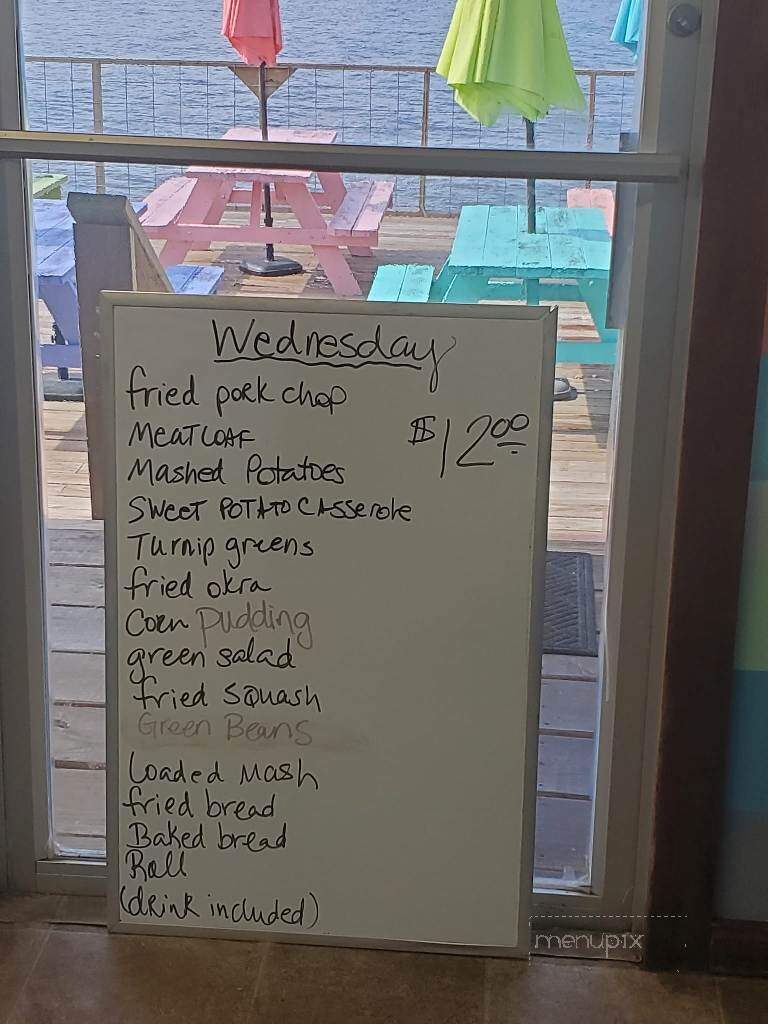 Wednesday
fried pork chop
MEATLOAF
$12.00
Mashed Potatoes
SWEET POTATO CASSEROLE
Turnip greens
fried okra
Corn pudding
green salad
fried squash
Green Beans
Loaded Mash
fried bread
Baked bread
Roll
(drink included)
menupix